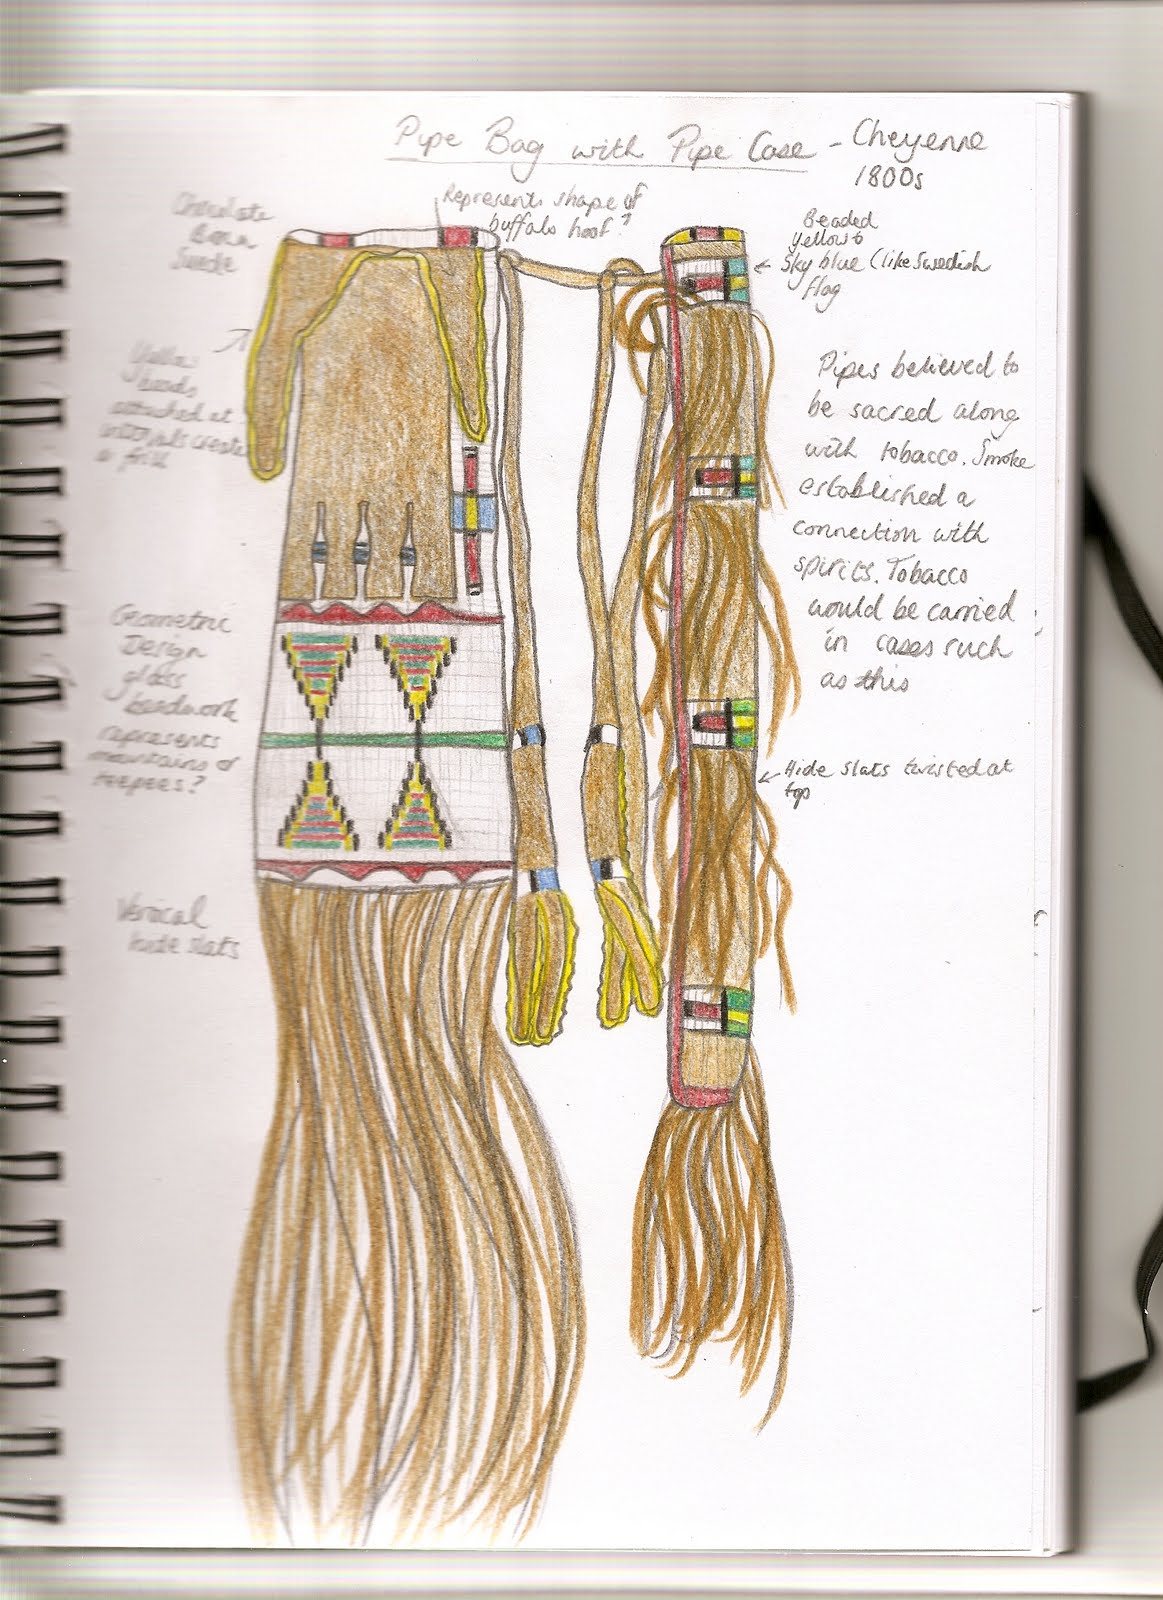 Pipe Bag with Pipe Case - Cheyenne
1800s
Chocolate
Brown
Suede
Represents shape of
buffalo hoof?
Beaded
yellow &
Sky blue (like Swedish
flag
Yellow
beads
attached at
intervals create
a frill
Pipes believed to
be sacred along
with tobacco. Smoke
established a
connection with
spirits. Tobacco
would be carried
in cases such
as this
Geometric
Design
glass
beadwork
represents
mountains or
teepees?
Hide slats twisted at
top
Vertical
hide slats